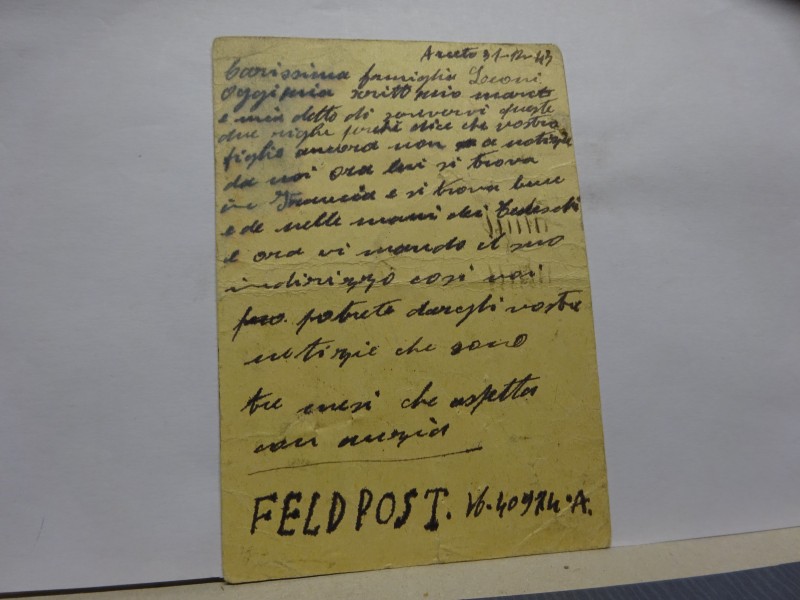 31-12-43
Carissima famiglia
Oggi mia scritt mio marito
e mia detto di scrivervi queste
due righe perchi dice che vostro
figlio ancora non a notizie
da voi ora lui si trova
in Francia e si trova bene
e de nelle mani dei Tedeschi
e ora vi mando il suo
indirizzo cosi voi
potrete dargli vostre
notizie che sono
tre mesi che aspetta
con anzia
FELDPOST. A.